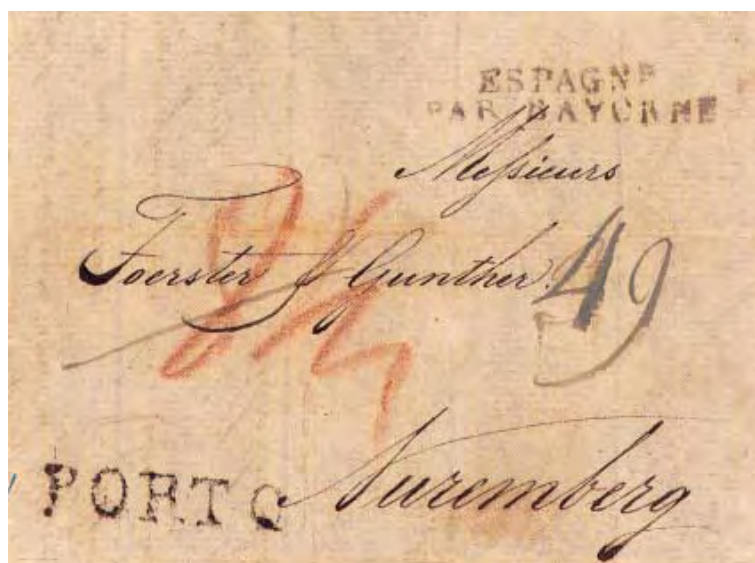 ESPAGNE
PAR BAYONNE
Messieurs
Foerster & Gunther.
49
PORTO
Nuremberg